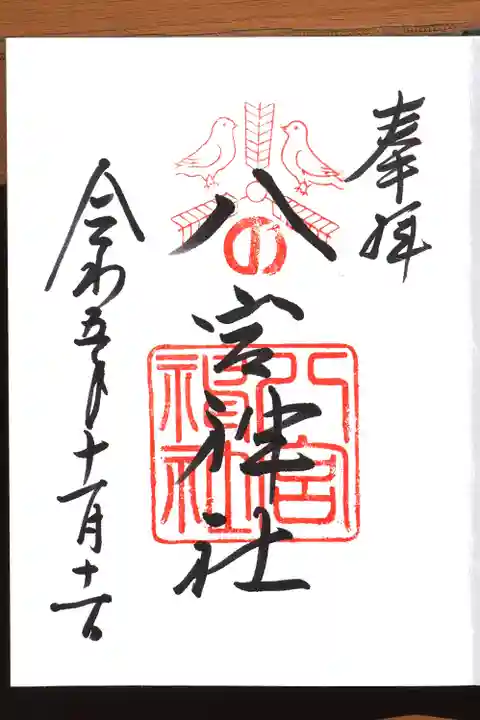 奉拝
八の宮神社
八宮神社
令和五年十一月十一日